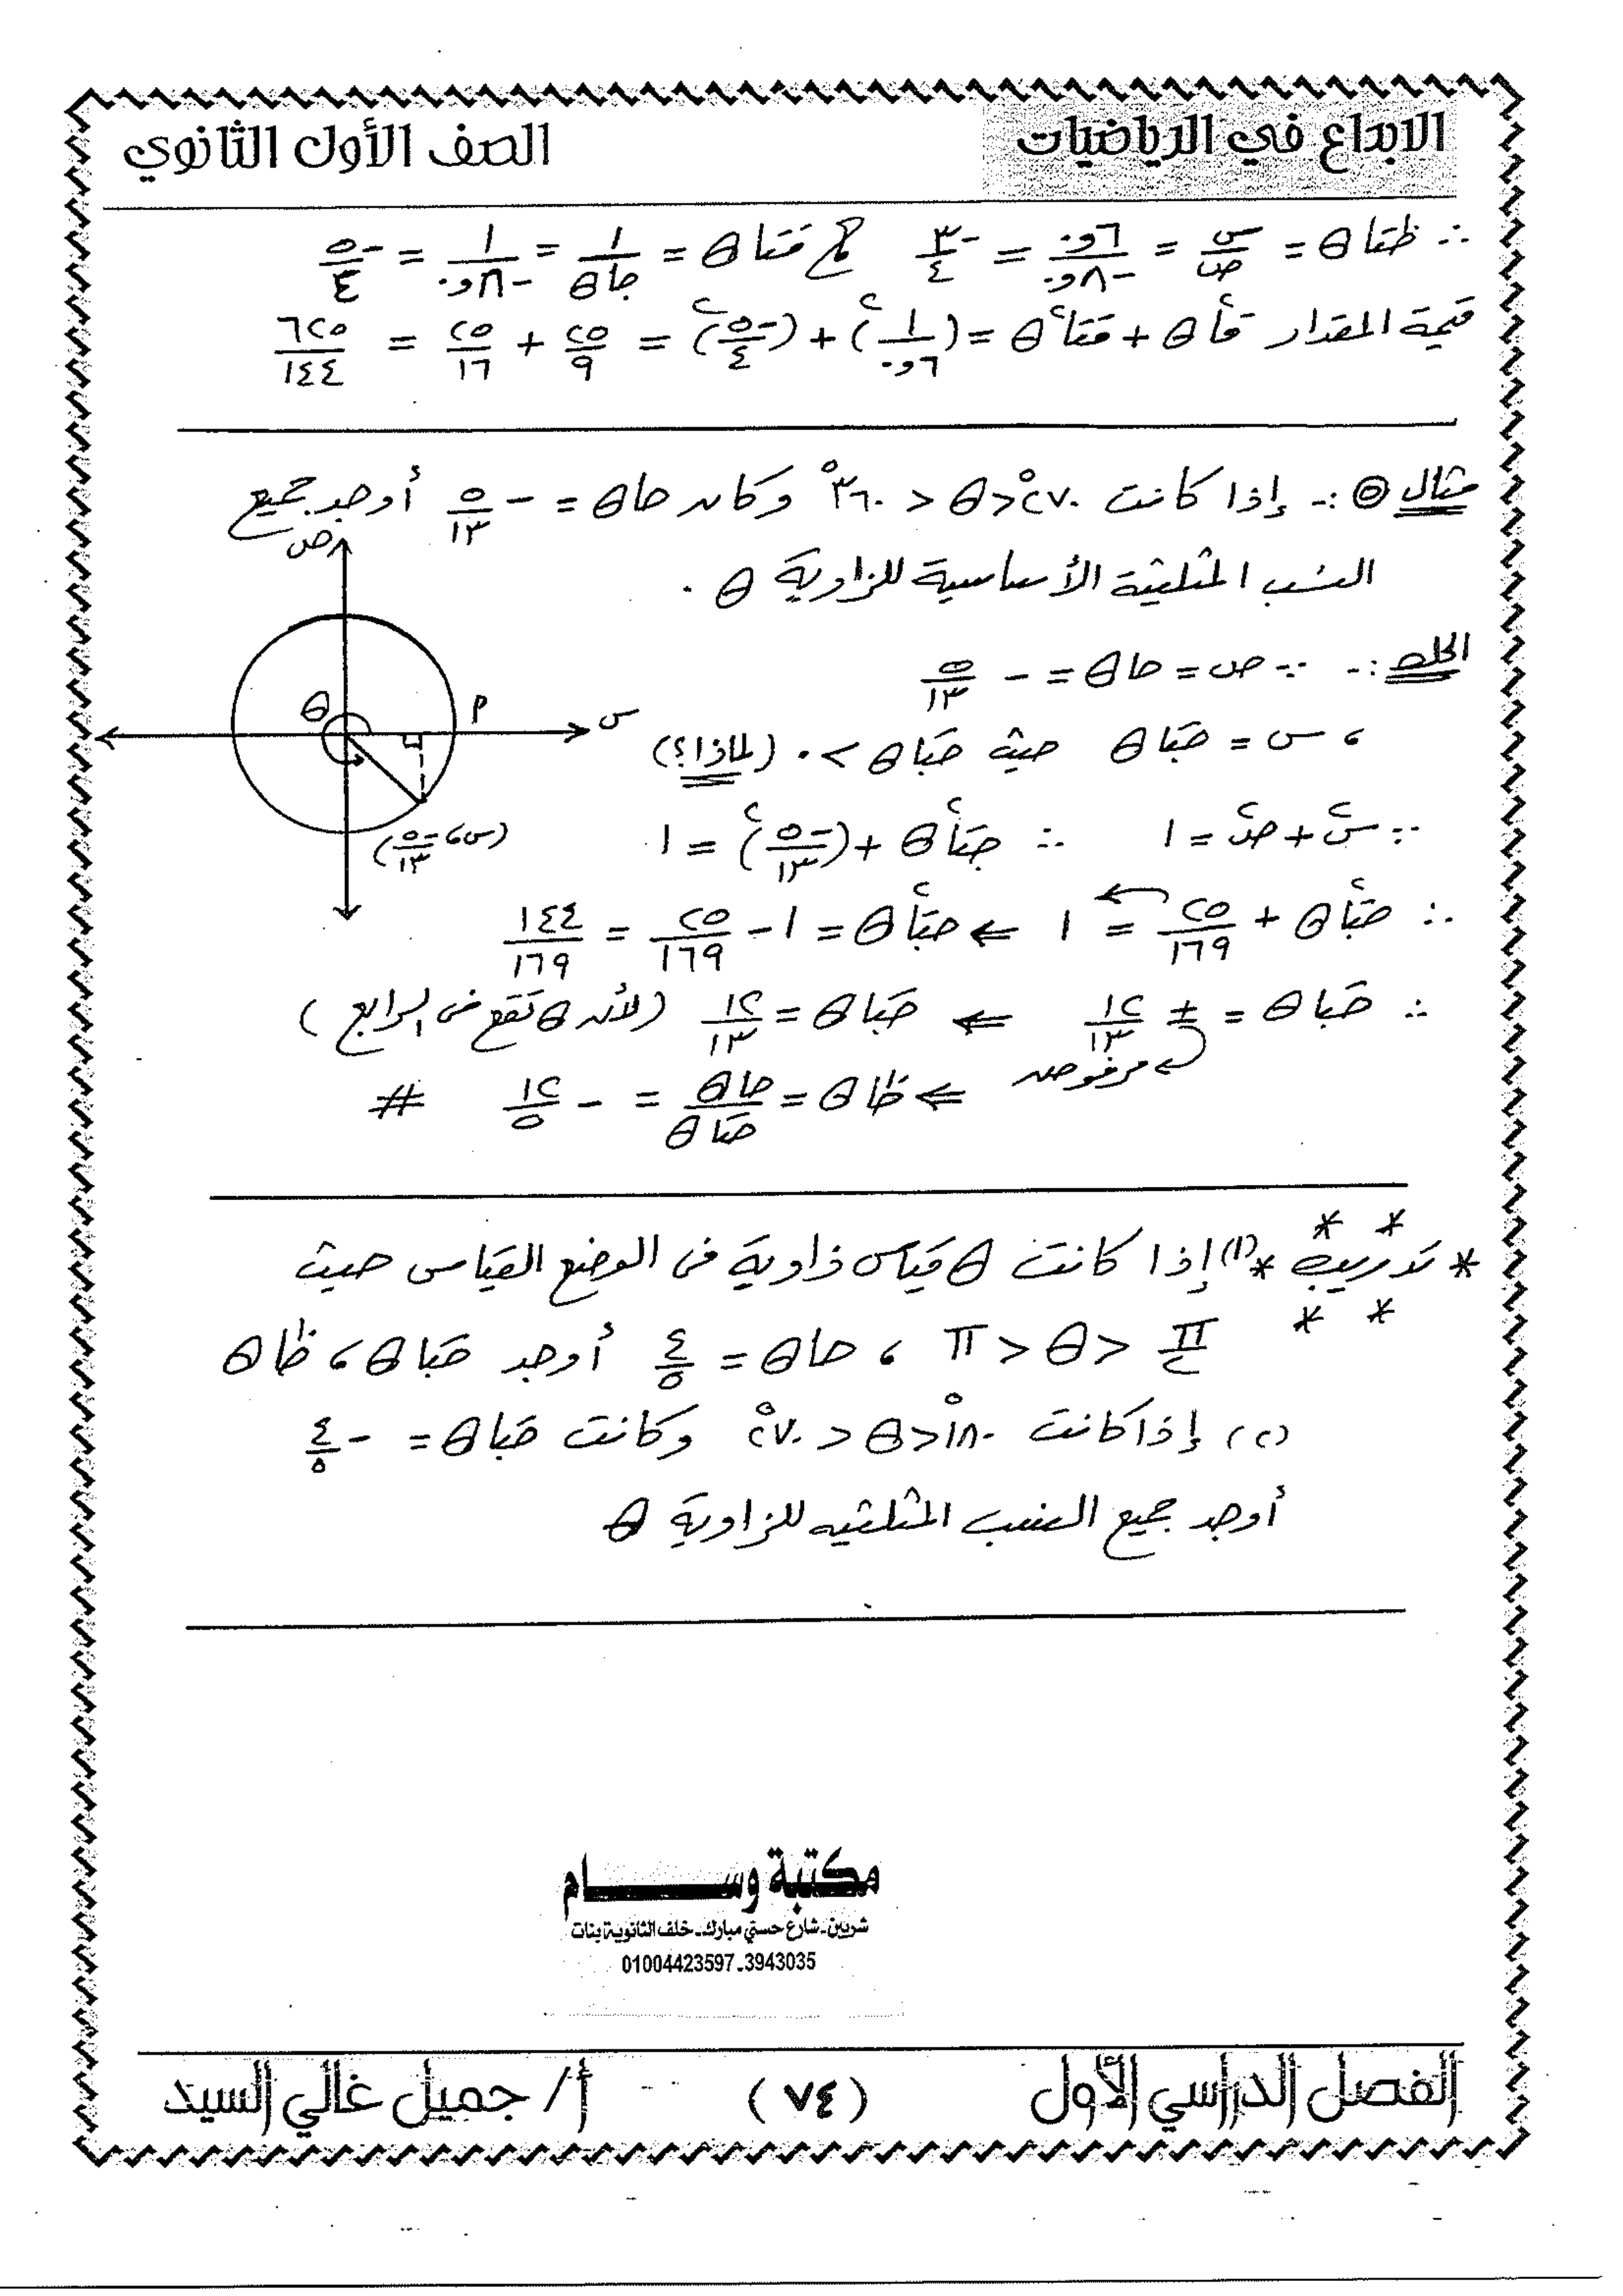 الابداع في الرياضيات الصف الأول الثانوي
∴ ظتا θ = س/ص = ٠٫٦/-٠٫٨ = -٣/٤ ، قتا θ = ١/جا θ = ١/-٠٫٨ = -٥/٤
قيمة المقدار قا٢ θ + قتا٢ θ = (١/٠٫٦)٢ + (-٥/٤)٢ = ٢٥/٩ + ٢٥/١٦ = ٦٢٥/١٤٤
مثال ٥ :- إذا كانت ٢٧٠° < θ < ٣٦٠° وكان حا θ = - ٥/١٣ أوجد جميع
النسب المثلثية الأساسية للزاوية θ .
الحل :- ∵ ص = حا θ = - ٥/١٣
، س = حتا θ حيث حتا θ > ٠ (لماذا؟)
∵ س٢ + ص٢ = ١ ∴ جتا٢ θ + (-٥/١٣)٢ = ١
∴ حتا٢ θ + ٢٥/١٦٩ = ١ ⇐ حتا٢ θ = ١ - ٢٥/١٦٩ = ١٤٤/١٦٩
∴ حتا θ = ± ١٢/١٣ ⇐ حتا θ = ١٢/١٣ (لأن θ تقع فى الرابع)
مرفوض ⇐ ظا θ = حا θ/حتا θ = - ١٢/٥ #
ص
θ
م
س
(س ، -٥/١٣)
* تدريب * (١) إذا كانت θ قياس زاوية فى الوضع القياسى حيث
π/٢ < θ < π ، حا θ = ٤/٥ أوجد حتا θ ، ظا θ
(٢) إذا كانت ١٨٠° < θ < ٢٧٠° وكانت حتا θ = - ٤/٥
أوجد جميع النسب المثلثيه للزاوية θ
مكتبة وسام
شربين - شارع حسني مبارك - خلف الثانوية بنات
01004423597 - 3943035
الفصل الدراسي الأول (٧٤) أ/ جميل غالي السيد